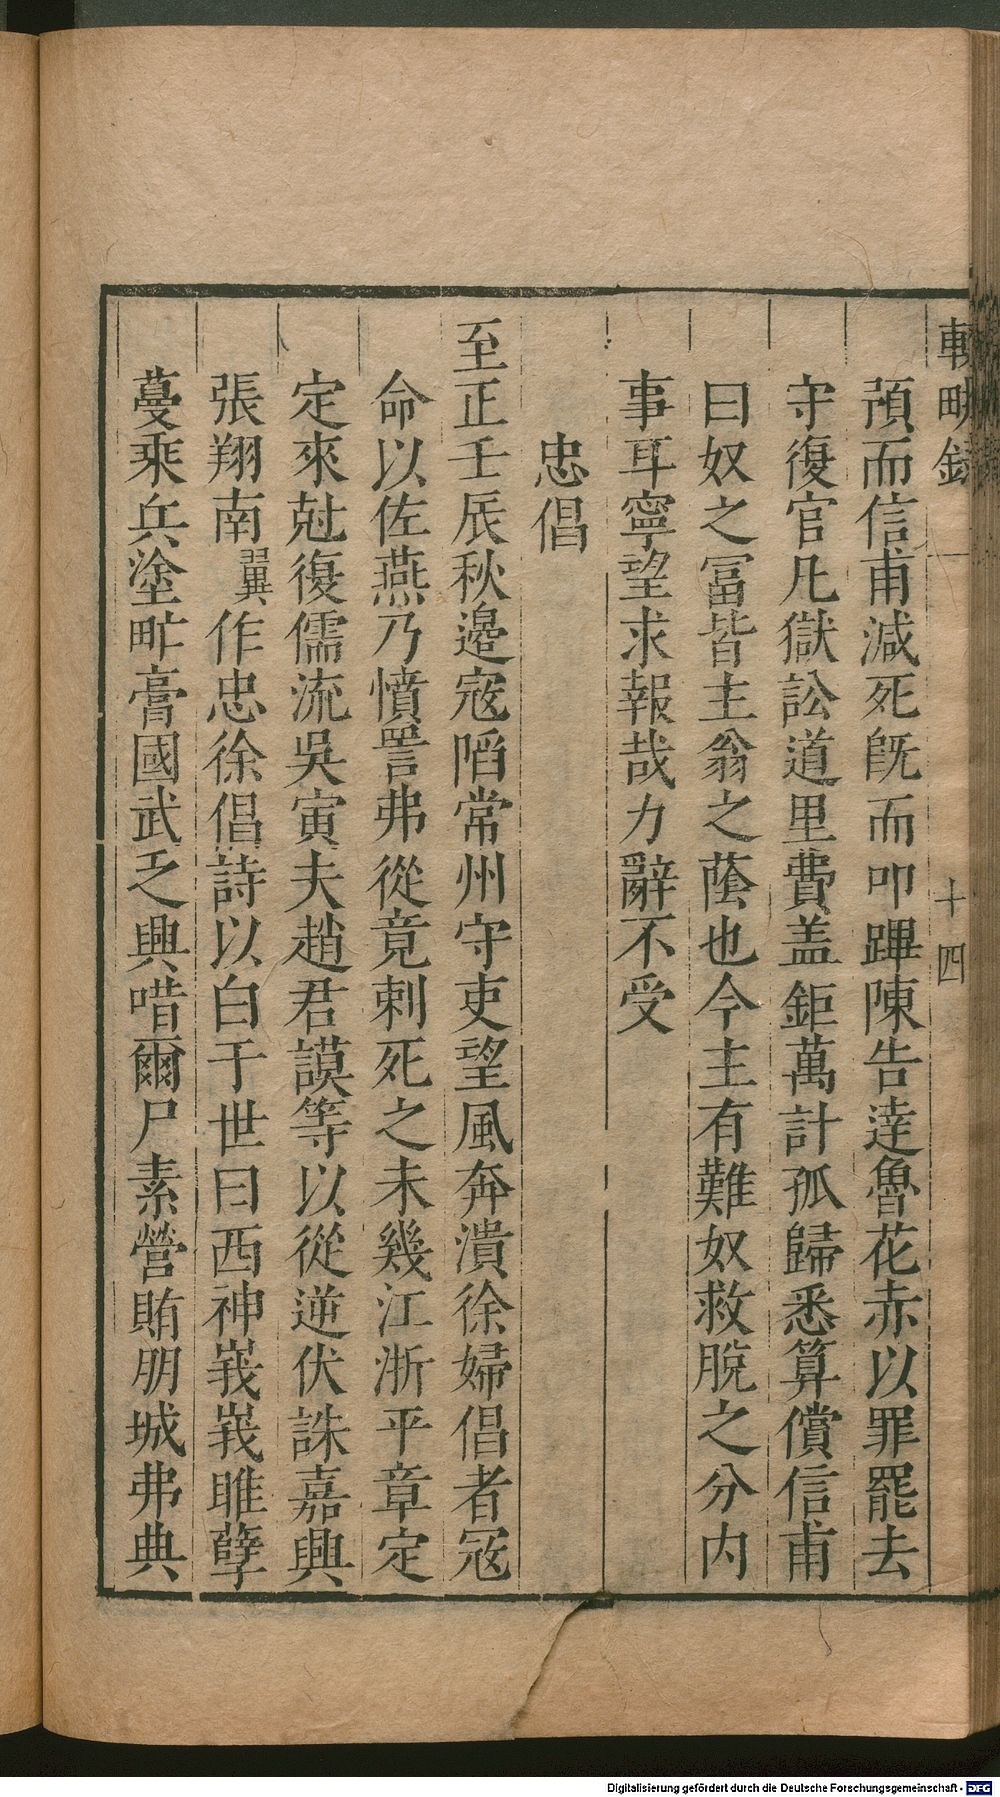 輟畊錄 十四
預而信甫減死旣而叩蹕陳告達魯花赤以罪罷去
守復官凡獄訟道里費盖鉅萬計孤歸悉算償信甫
曰奴之冨皆主翁之蔭也今主有難奴救脫之分内
事耳寧望求報哉力辭不受
忠倡
至正壬辰秋邉寇陷常州守吏望風奔潰徐婦倡者寇
命以佐燕乃憤詈弗從竟剌死之未幾江浙平章定
定來尅復儒流吳寅夫趙君謨等以從逆伏誅嘉興
張翔南翼作忠徐倡詩以白于世曰西神峩峩睢孽
蔓乘兵塗甿膏國武之興唶爾尸素營賄朋城弗典
Digitalisierung gefördert durch die Deutsche Forschungsgemeinschaft - DFG